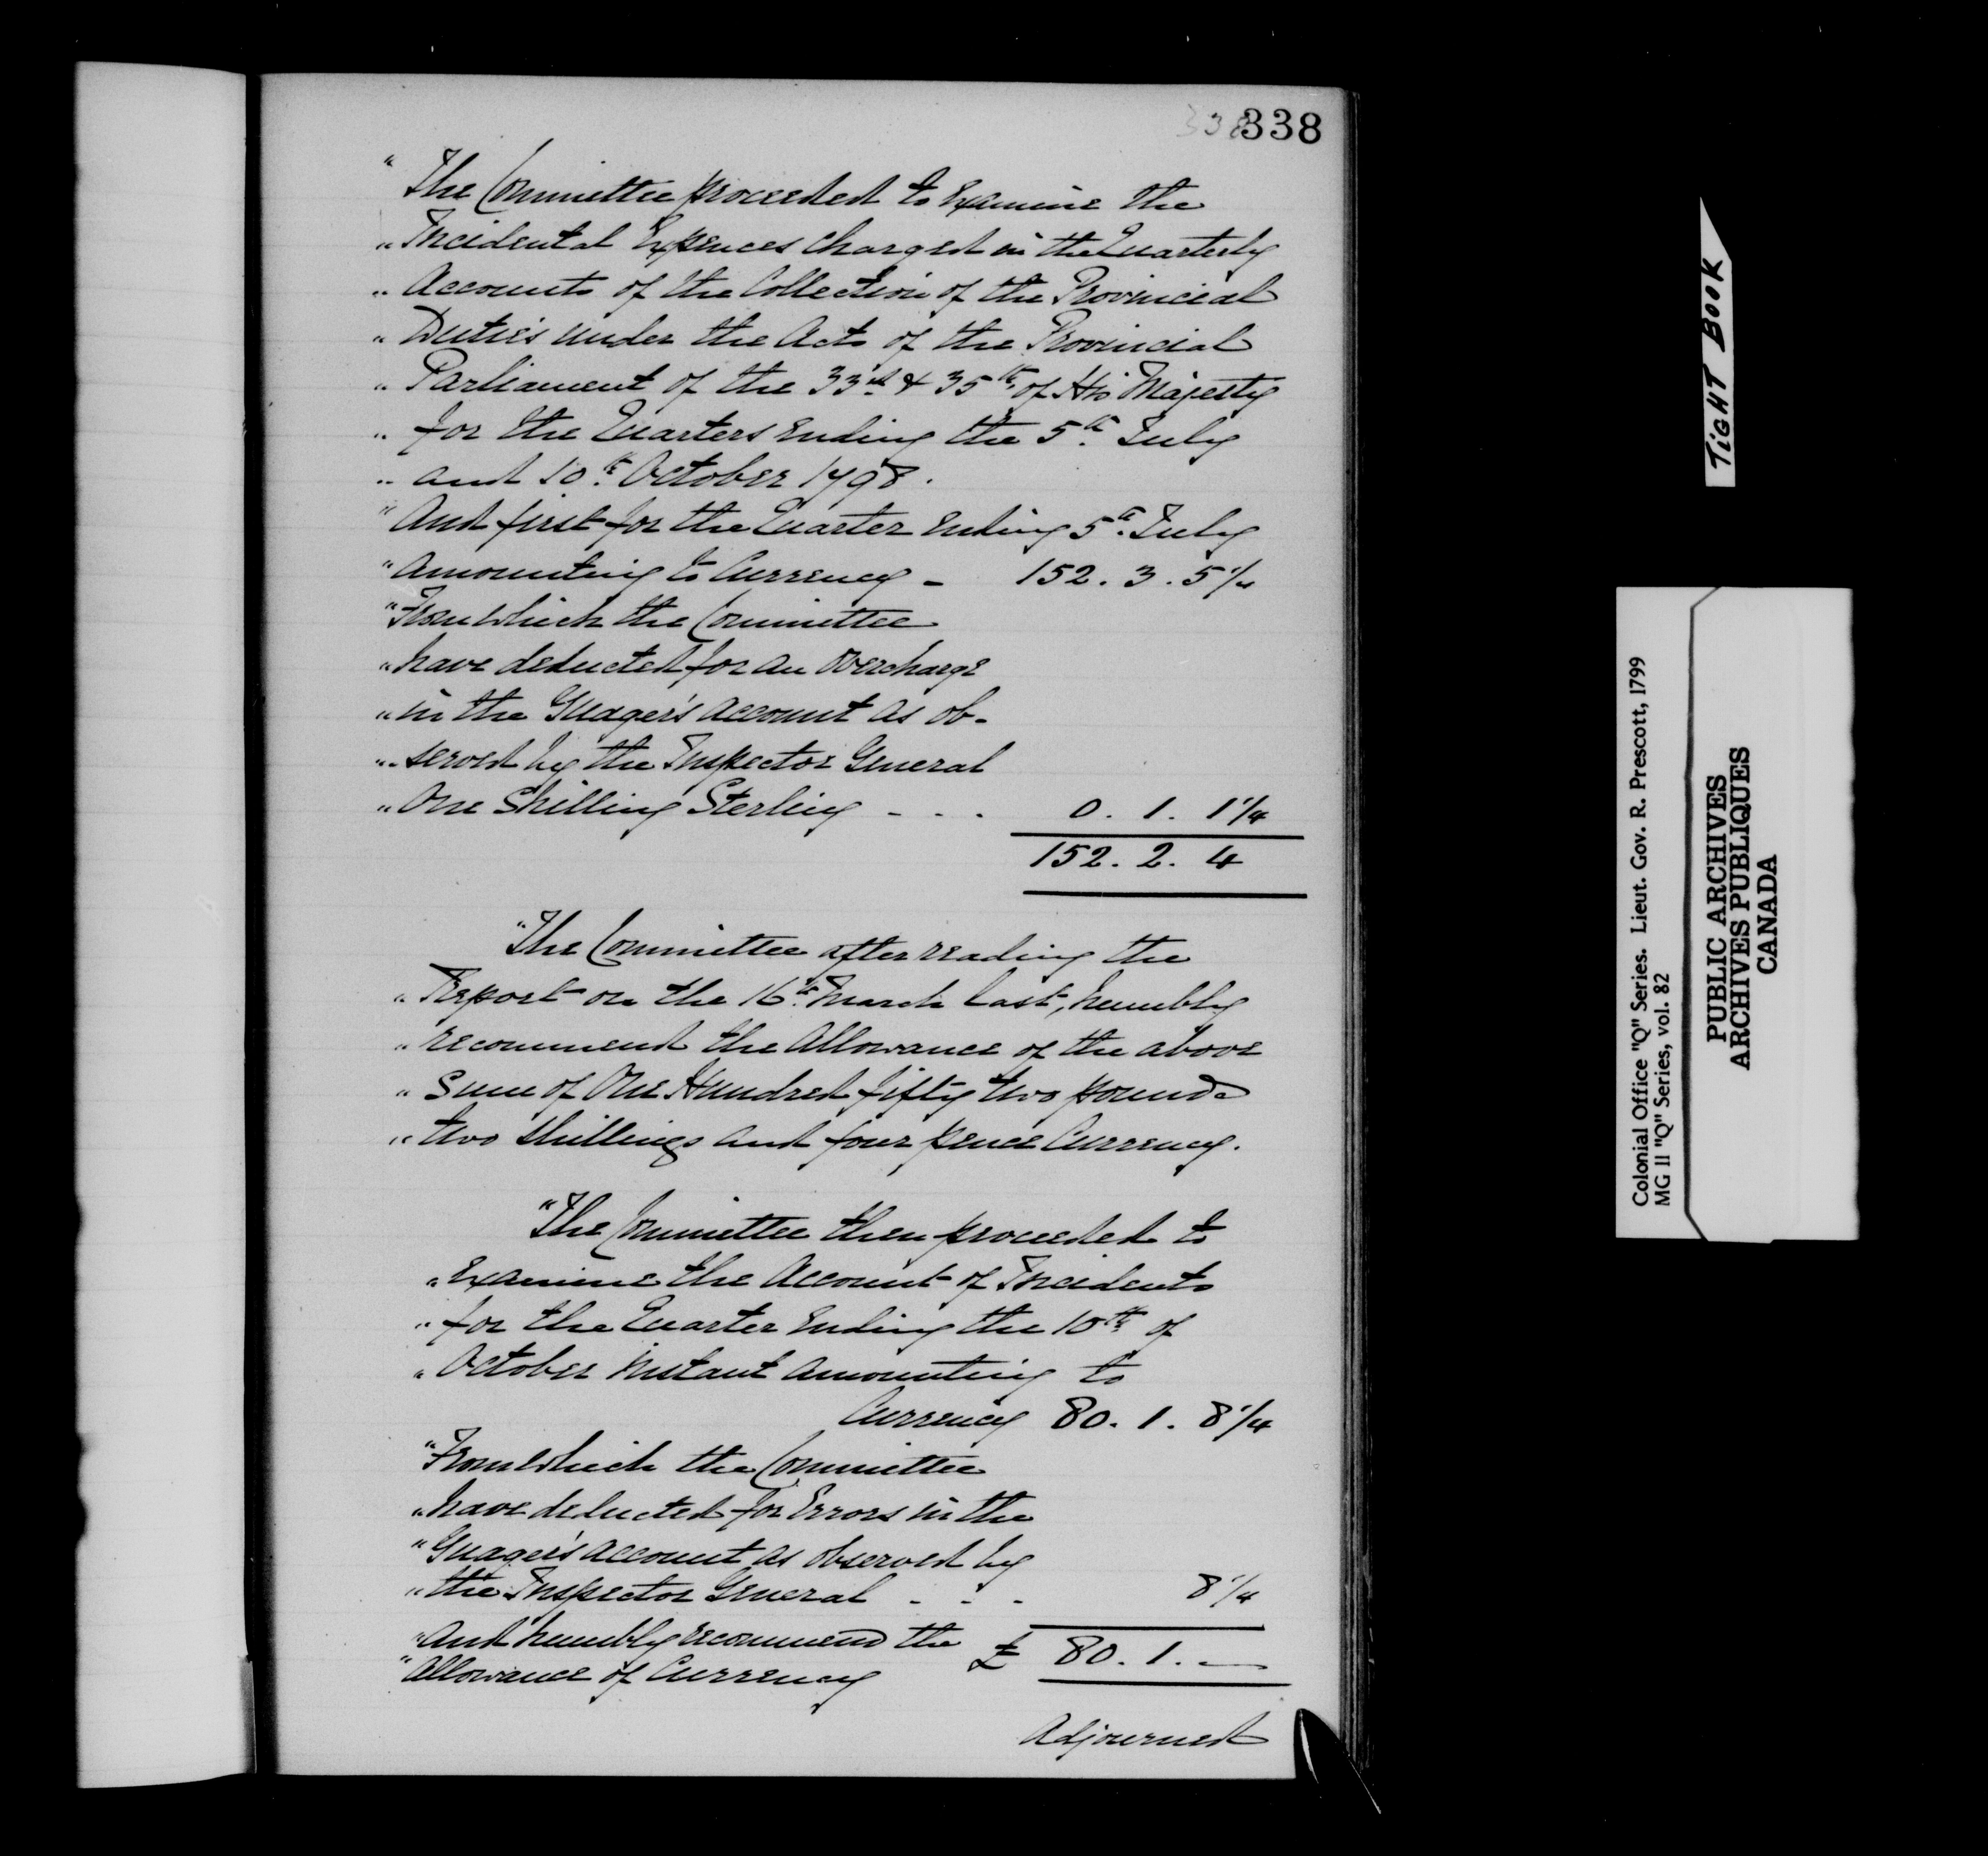 338 338
"The Committee proceeded to Examine the
"Incidental Expences charged in the Quarterly
"Accounts of the Collection of the Provincial
"Duties under the Acts of the Provincial
"Parliament of the 33rd & 35th of His Majesty
"for the Quarters Ending the 5th July
"and 10th October 1798.
"And first for the Quarter Ending 5th July
"amounting to Currency - 152. 3. 5 1/4
"From which the Committee
"have deducted for an overcharge
"in the Guager's account as ob-
"served by the Inspector General
"One Shilling Sterling - - - 0. 1. 1 1/4
152. 2. 4
"The Committee after reading the
"Report on the 16th March last, humbly
"recommend the Allowance of the above
"Sum of One Hundred fifty two pounds
"two shillings and four pence Currency.
"The Committee then proceeded to
"Examine the Account of Incidents
"for the Quarter Ending the 10th of
"October Instant amounting to
Currency 80. 1. 8 1/4
"From which the Committee
"have deducted for Errors in the
"Guager's account as observed by
"the Inspector General - - - 8 1/4
"and humbly recommend the £ 80. 1. —
"Allowance of Currency
Adjourned
TIGHT BOOK
Colonial Office "Q" Series. Lieut. Gov. R. Prescott, 1799
MG 11 "Q" Series, vol. 82
PUBLIC ARCHIVES
ARCHIVES PUBLIQUES
CANADA